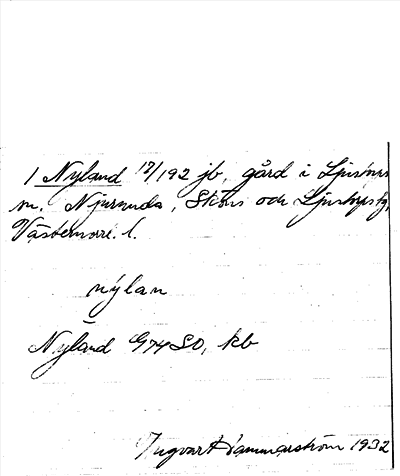 1 Nyland 12/192 jb, gård i Ljustorps
sn. Njurunda, Sköns och Ljustorps tg,
Västernorrl. l.
nýlan
Nyland G74SO, kb
Ingvar Hammarström 1932